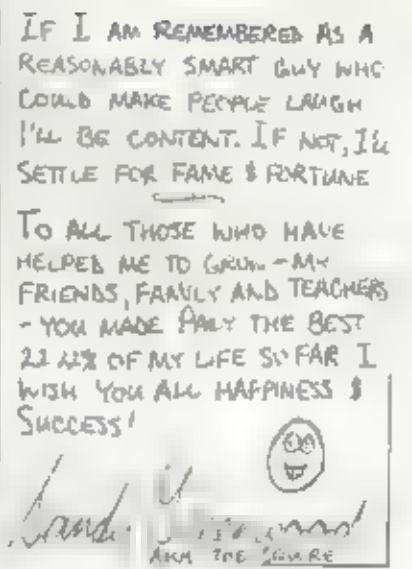 IF I AM REMEMBERED AS A
REASONABLY SMART GUY WHO
COULD MAKE PEOPLE LAUGH
I'LL BE CONTENT. IF NOT, I'LL
SETTLE FOR FAME $ FORTUNE
TO ALL THOSE WHO HAVE
HELPED ME TO GROW - MY
FRIENDS, FAMILY AND TEACHERS
- YOU MADE THE BEST
OF MY LIFE SO FAR I
WISH YOU ALL HAPPINESS $
SUCCESS!
THE